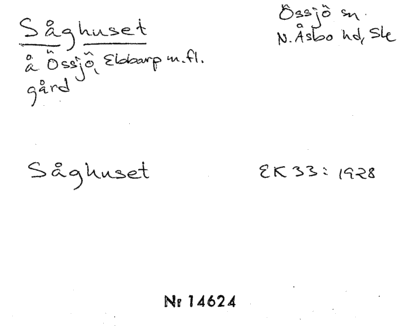 Såghuset
å Össjö, Ebbarp m.fl.
gård
Össjö sn.
N. Åsbo hd, Sk
Såghuset
EK 33: 1928
Nr 14624